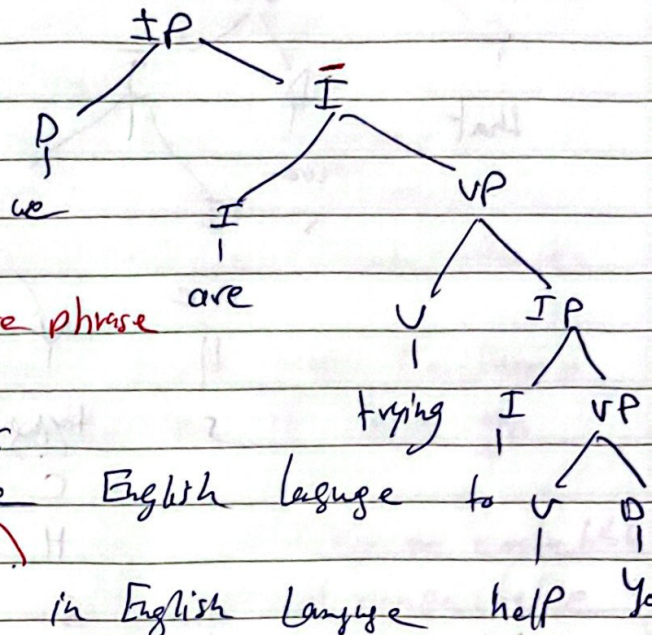 IP
D Ī
we I VP
are
e phrase V IP
trying I VP
English laguge to V D
in English Languge help